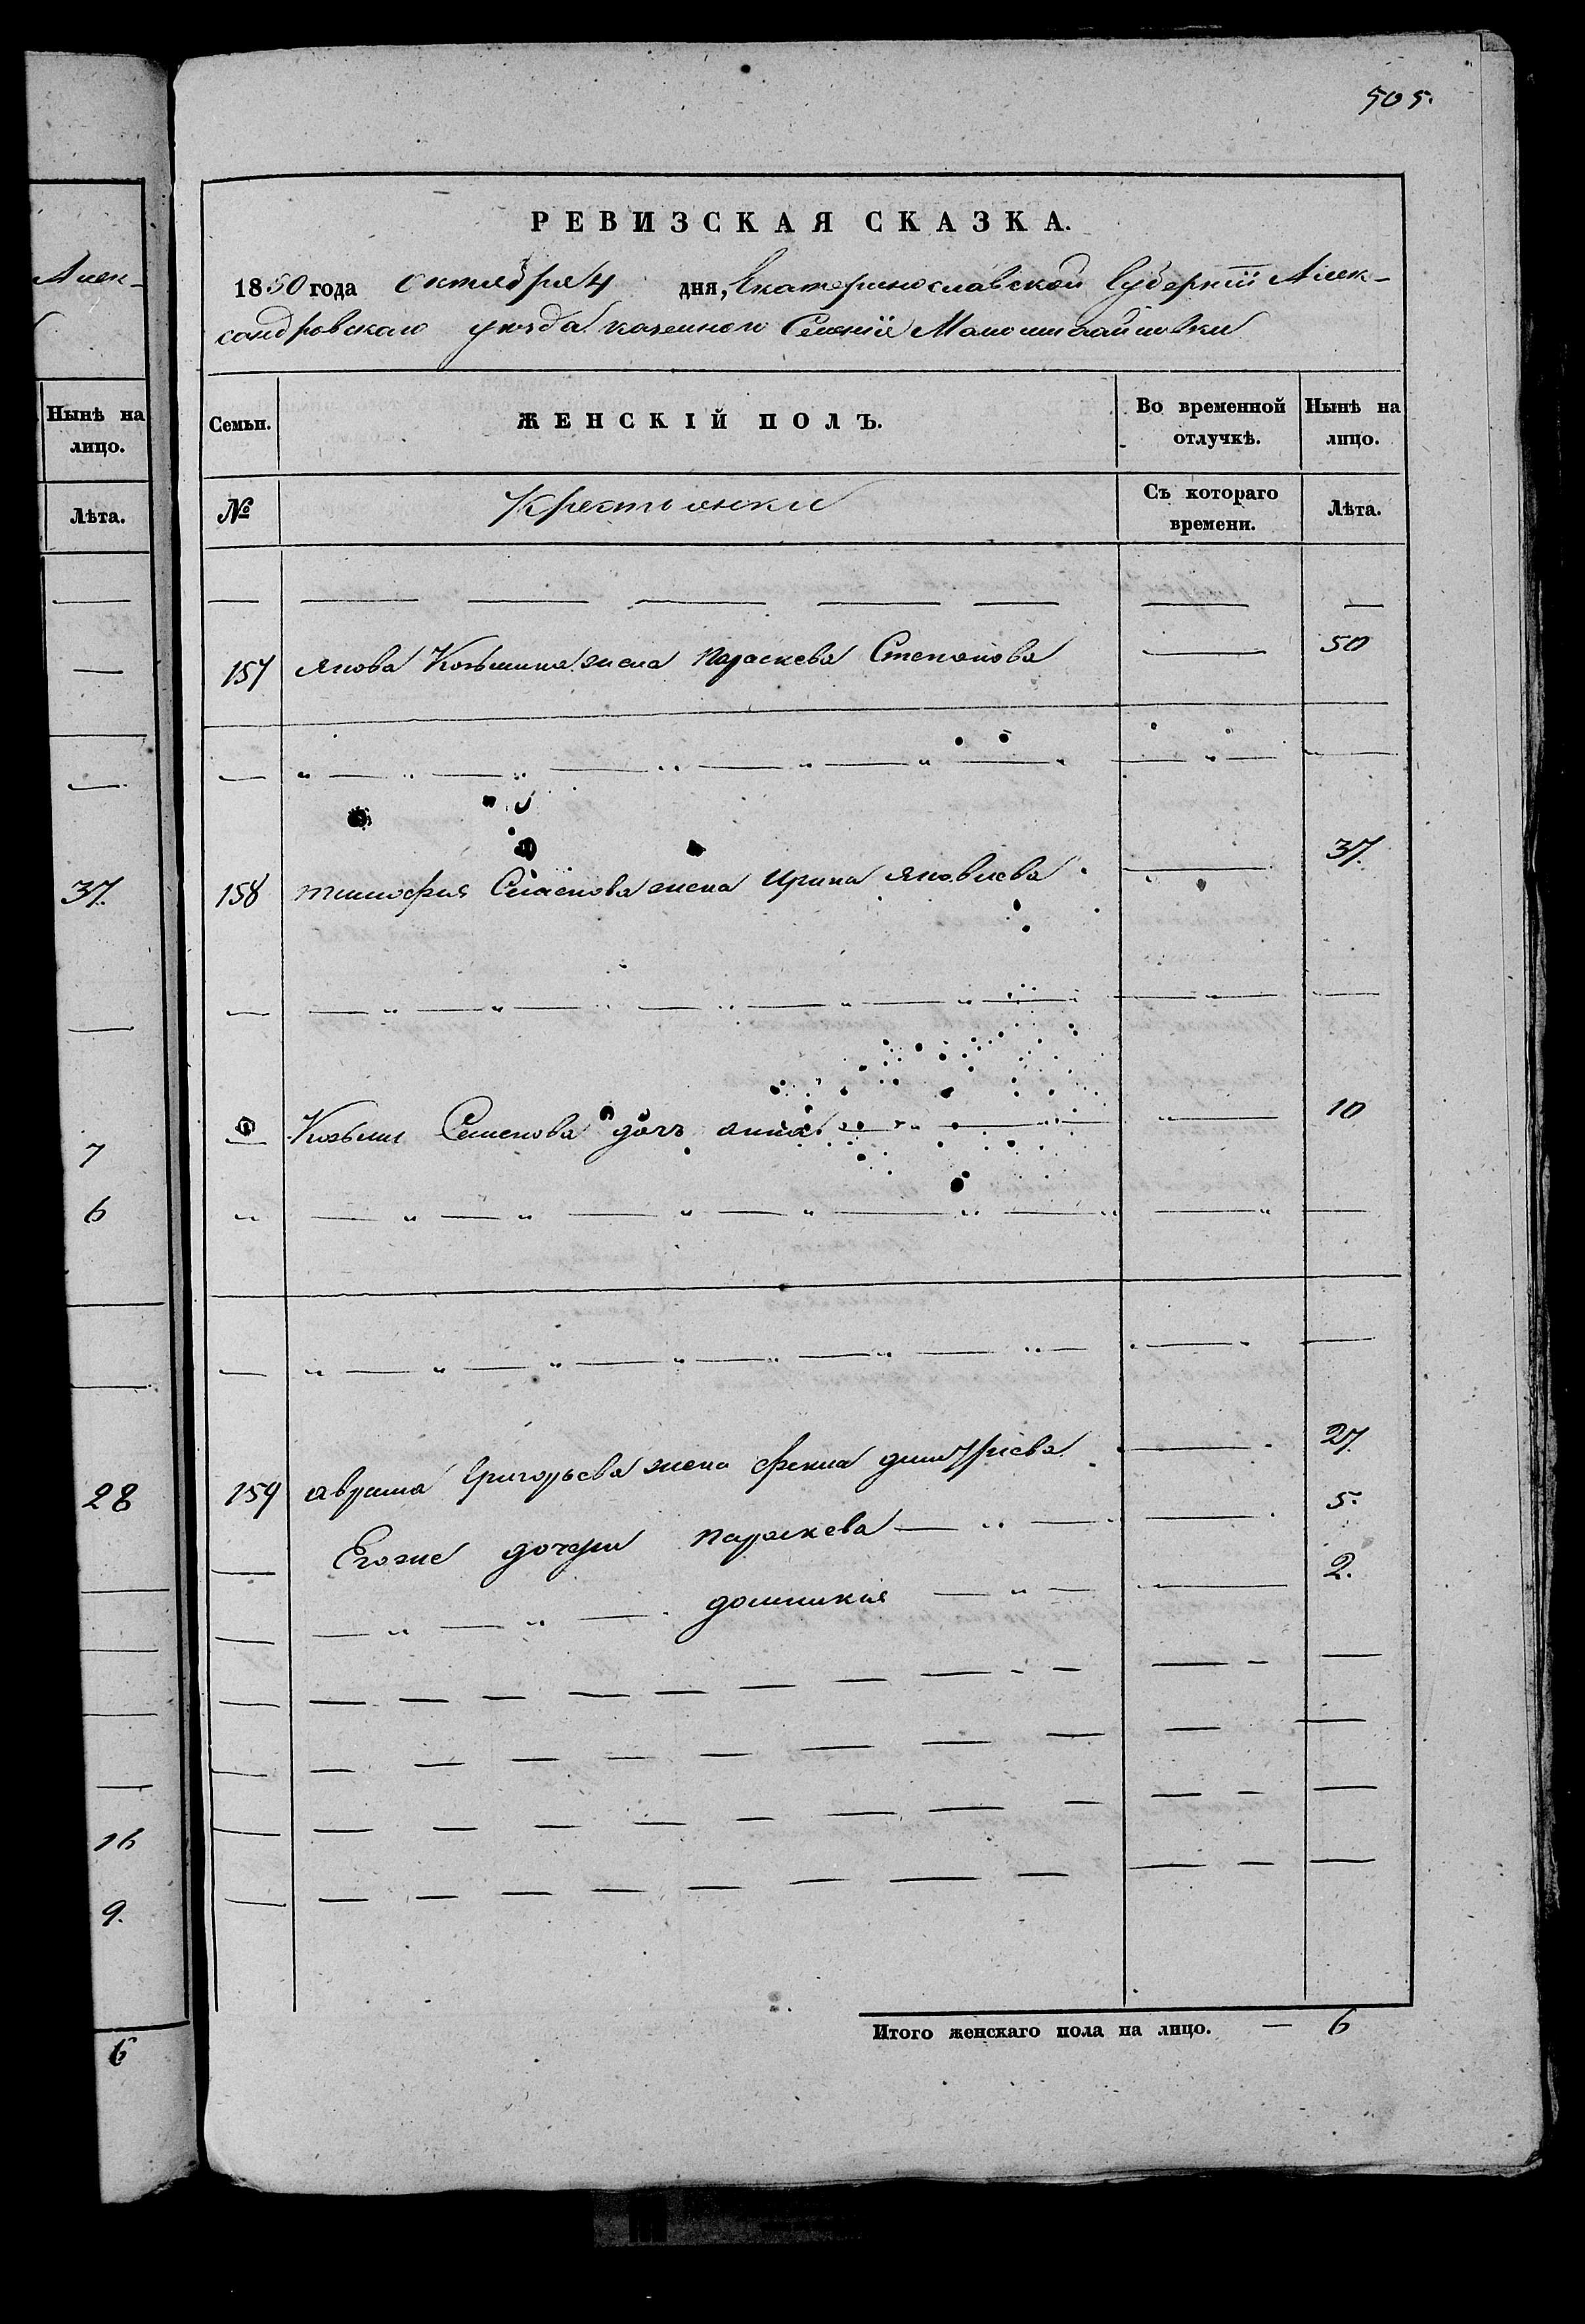 505.
РЕВИЗСКАЯ СКАЗКА.
1850 года октября 4 дня, Екатеринославской Губерніи Алек-
сандровскаго уезда казенной Селенія
Алек-
Нынѣ на лицо.
Лѣта.
37.
7
6
28
16
9.
6
Семьи. ЖЕНСКІЙ ПОЛЪ. Во временной отлучкѣ. Нынѣ на лицо.
№ Крестьянки Съ котораго времени. Лѣта.
157 Якова Козьмина жена Параскева Степанова 50
158 тимофея жена Ирина Яковлева 37.
Козьми Семенова дочь анна 10
159 аврама Григорьева жена фекла дмитріева 27.
Егоже дочери параскева 5.
домникія 2.
Итого женскаго пола на лицо. — 6